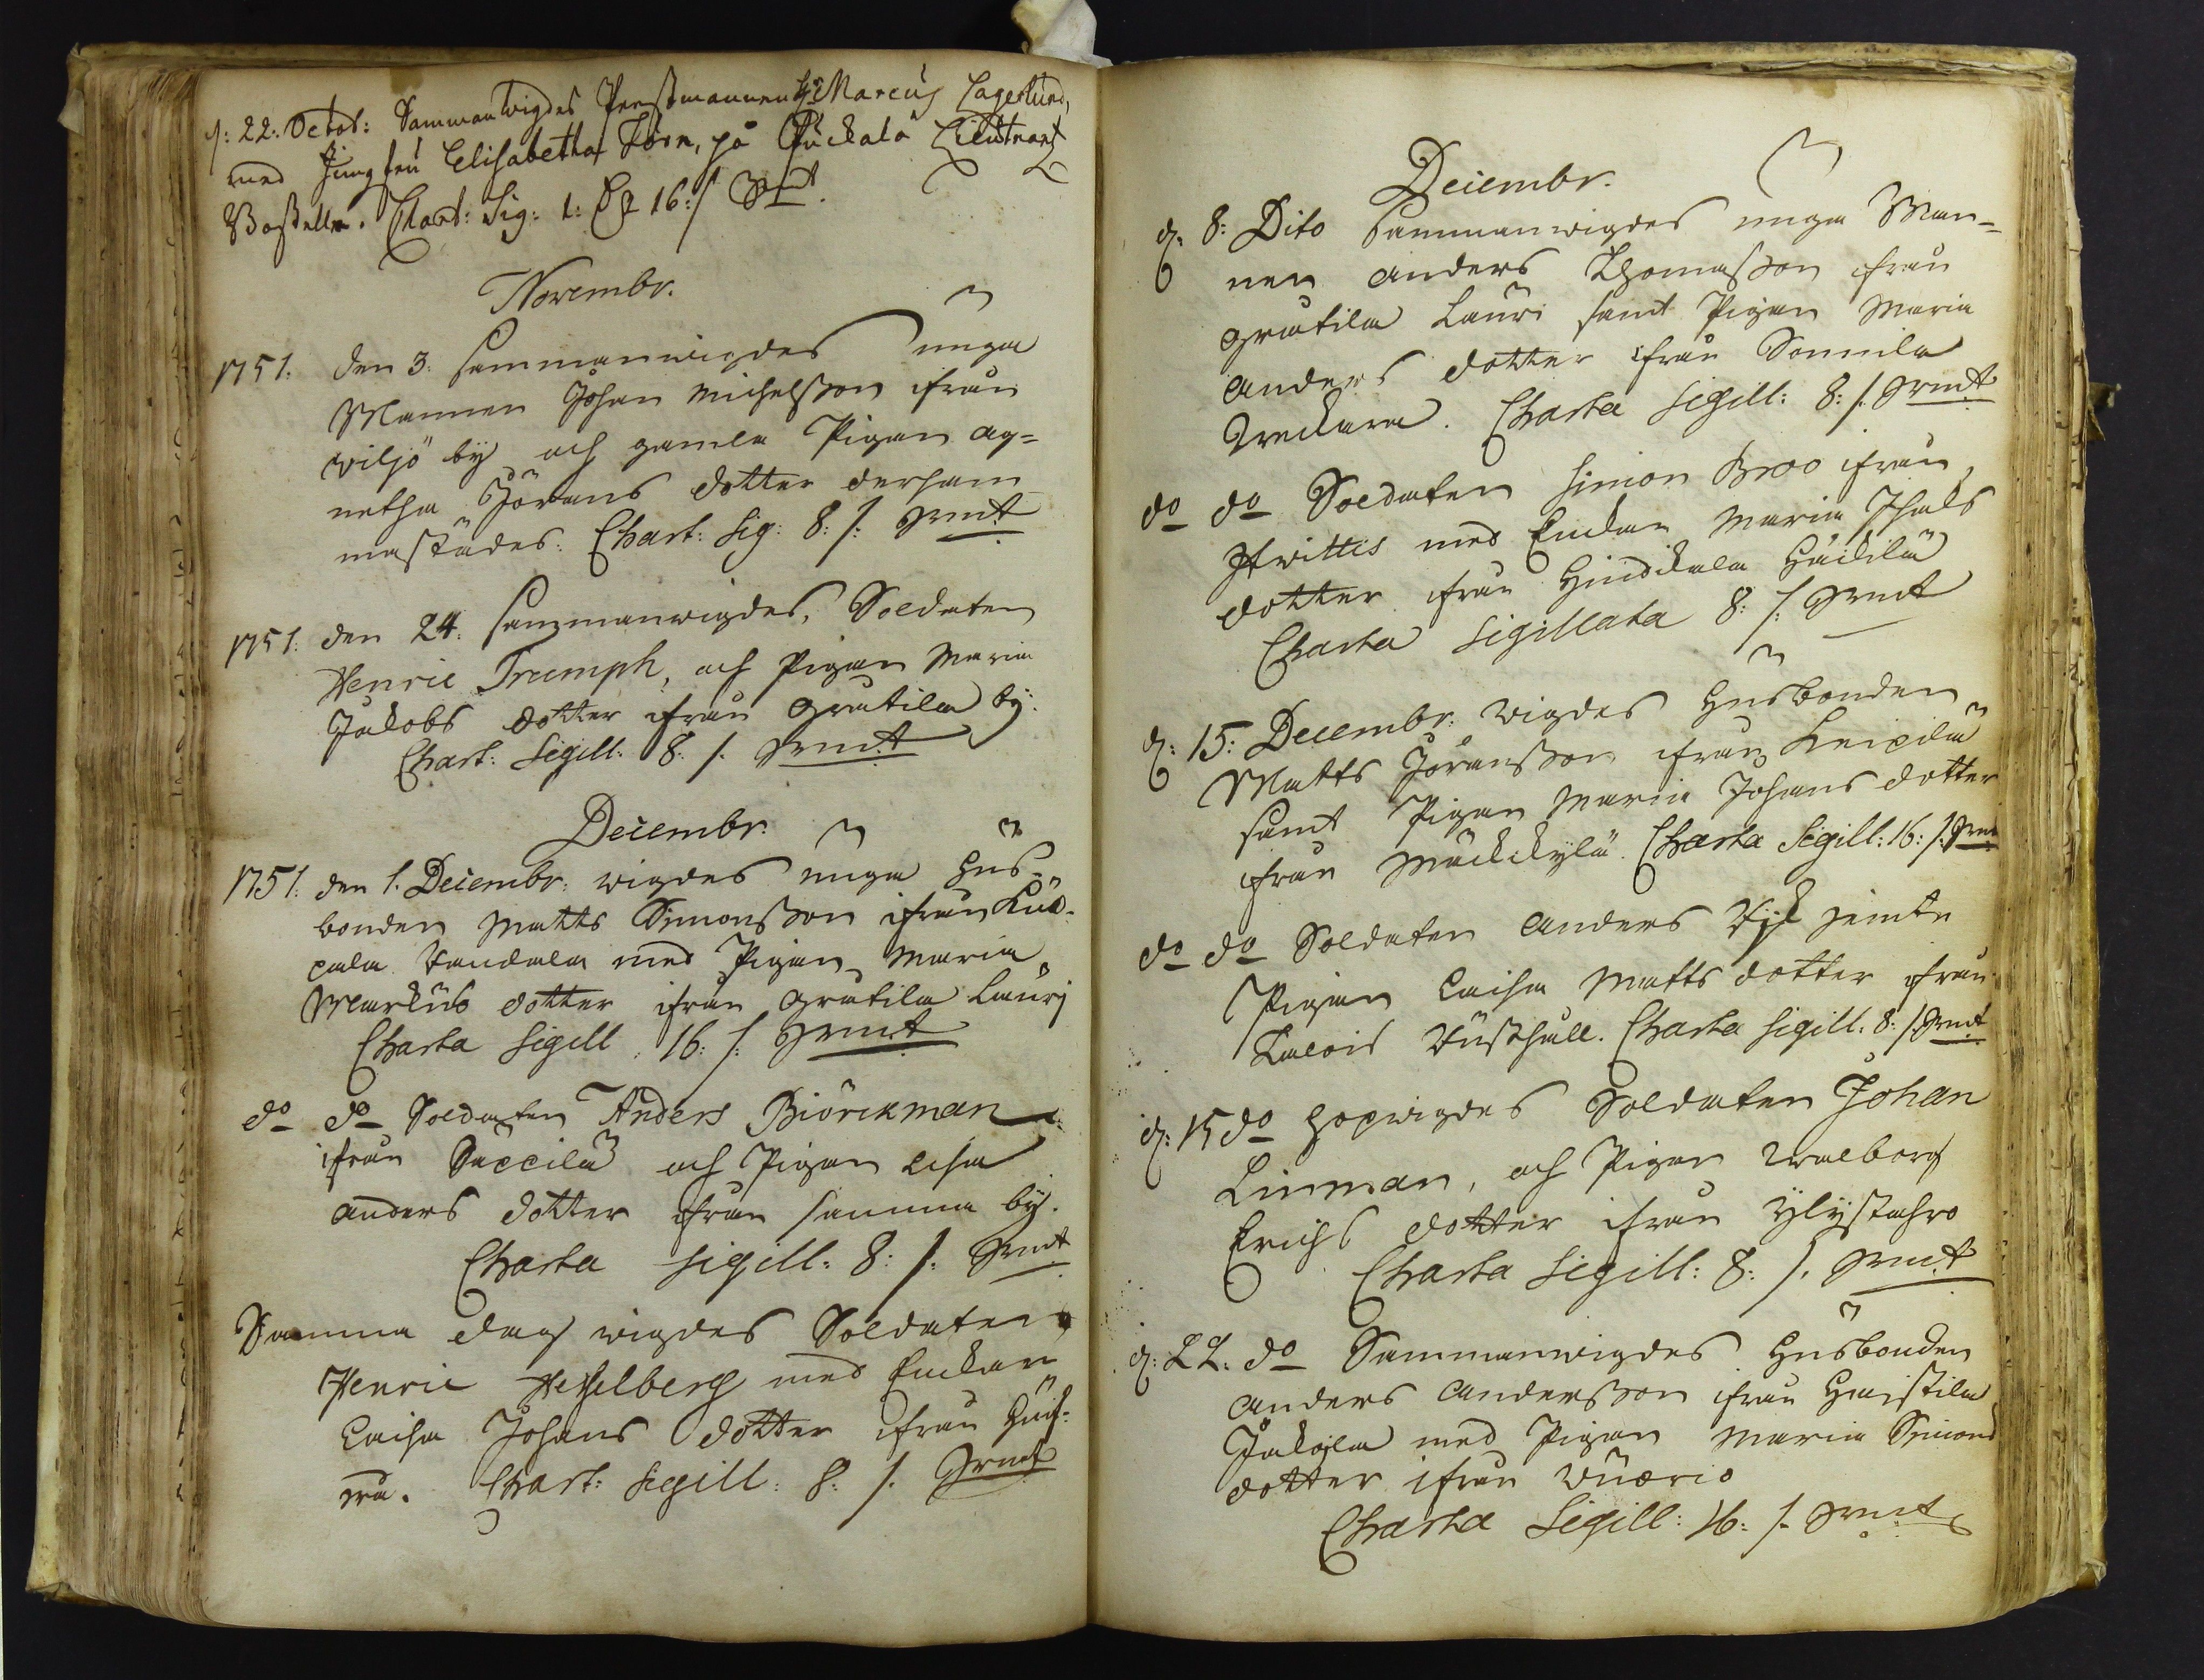 d: 22. Octob: Sammanwigdes Prestmannen Hr Marcus Lagerlund,
med Jungfru Elisabetha Törn, på Puckala Lieutnants
Bostelle. Chart: Sig: 1: Dr 16: s Smt.
Novembr.
1751: den 3. sammanwigdes unga
Mannen Johan Michelsson ifrån
wiljo by och gamla Pigan Ag=
netha Jörans dotter dersam
mastädes. Chart: Sig: 8: s. Smt
1751: den 24. sammanwigdes, Soldaten
Henric Trumph, och Pigan Maria
Jakobs dotter ifrån Gratila by.
Chart: Sigill: 8. s. Smt
Decembr.
1751: den 1. Decembr. wigdes unga Hus=
bonden Matts Simonsson ifrån
med Pigan Maria
Markus dotter ifrån Gratila Lauri
Charta Sigill. 16: s. Smt
do do Soldaten Anders Biörckman
ifrån och Pigan Lisa
Anders dotter ifrån samma by.
Charta Sigill. 8: s: Smt
Samma dag wigdes Soldaten
Henric Hesselberg med Enckan
Caisa Johans dotter ifrån
Chart: Sigill: 8: s. Smt
Decembr.
d. 8: Dito Sammanwigdes unga Man=
nen Anders Thomasson ifrån
Gratila Lauri samt Pigan Maria
Anders dotter ifrån Sonnila
Charta Sigill: 8: s. Smt
do do Soldaten Simon Broo ifrån
Hwittis med Enckan Maria Isaks
dotter ifrån Hindikala Häikilä
Charta Sigillata 8: s: Smt
d: 15: Decembr. wigdes Husbonden
Matts Jöransson ifrån Leipilä
samt Pigan Maria Johans dotter
ifrån Mäckkylä. Charta Sigill: 16: s. Smt
do do Soldaten Anders jemte
Pigan Caisa Matts dotter ifrån
Charta Sigill. 8: s Smt
d: 15 do hopwigdes Soldaten Johan
Linman, och Pigan Walborg
Erichs dotter ifrån Ylistahro
Charta Sigill: 8: s. Smt
d: 22. do Sammanwigdes Husbonden
Anders Andersson ifrån Haistila
Jakola med Pigan Maria Simons
dotter ifrån Wuorio
Charta Sigill: 16: s. Smt